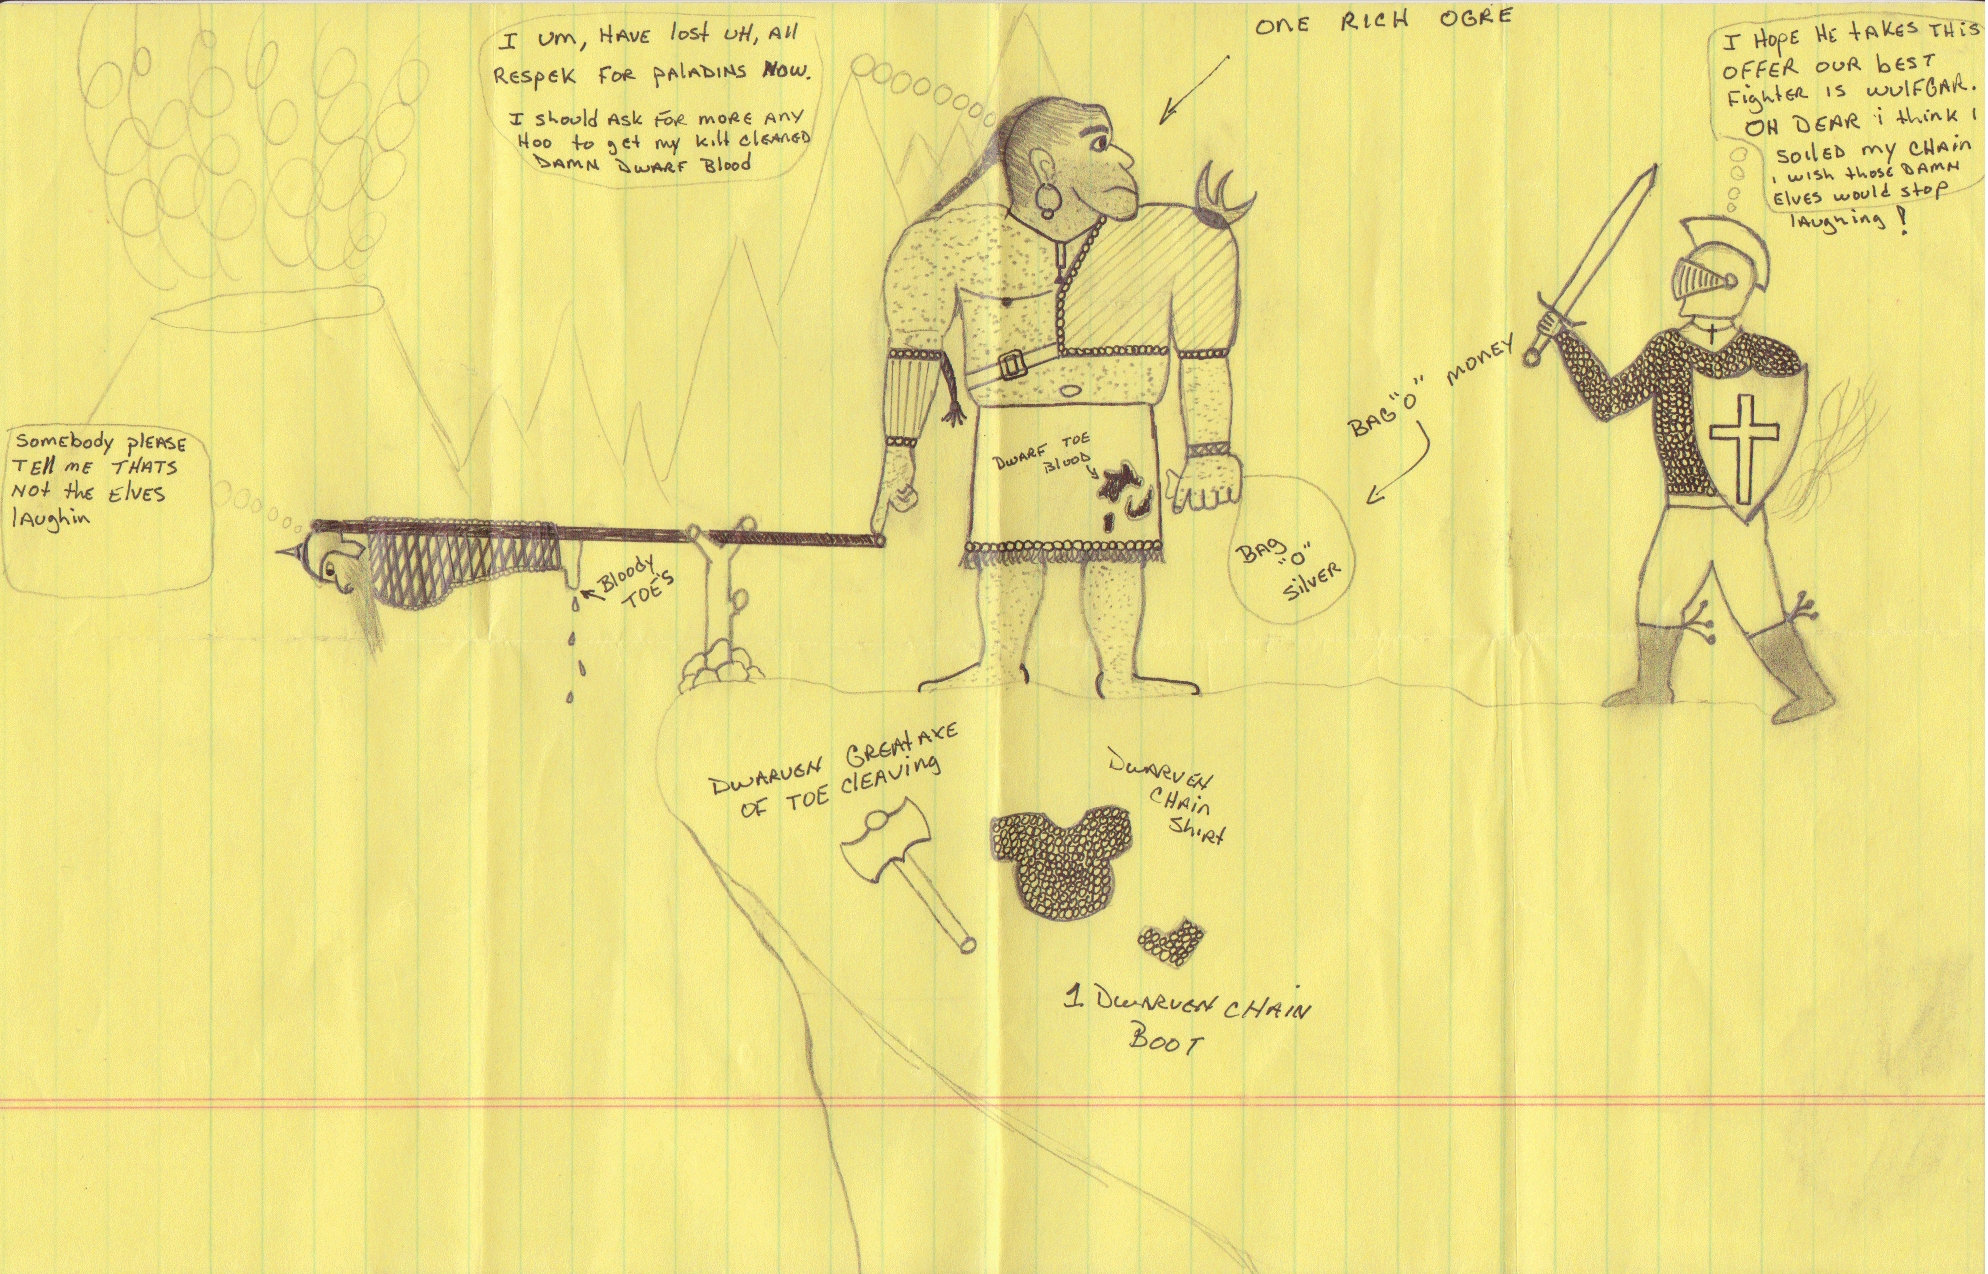 I um, HAVE lost UH, All
RESPEK FOR PALADINS NOW.
I should ASK FOR MORE ANY
HOO to get my kilt CLEANED
DAMN DWARF Blood
ONE RICH OGRE
I HOPE HE tAKES THIS
OFFER OUR bEST
FightER IS WULFGAR.
OH DEAR i think i
SOILED my CHAIN
i wish those DAMN
Elves would stop
lAughing!
BAG "O" MONEY
SomEbody plEASE
TEll me THATS
NOt the Elves
lAughin
DWARF TOE
Blood
BAG
"O"
SilvER
Bloody
TOE'S
DWARVEN GREAtAXE
OF TOE ClEAving
DWARVEN
CHAin
Shirt
1 DWARVEN CHAIN
BOOT